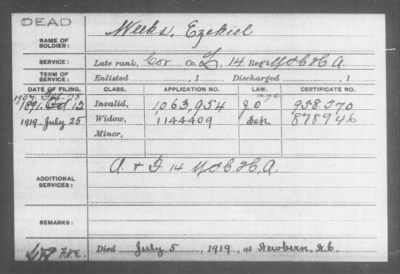 DEAD
NAME OF SOLDIER: Weeks, Ezekiel
SERVICE: Late rank, Cor Co. L, 14 Reg't U S C H A
TERM OF SERVICE: Enlisted , 1 Discharged , 1
DATE OF FILING. CLASS. APPLICATION NO. LAW. CERTIFICATE NO.
1891 Invalid, 1063,954 958570
1919-July 25 Widow, 1144409 878946
Minor,
ADDITIONAL SERVICES: A & F 14 U S C H A.
REMARKS:
Died July 5, 1919, at Newbern, N.C.